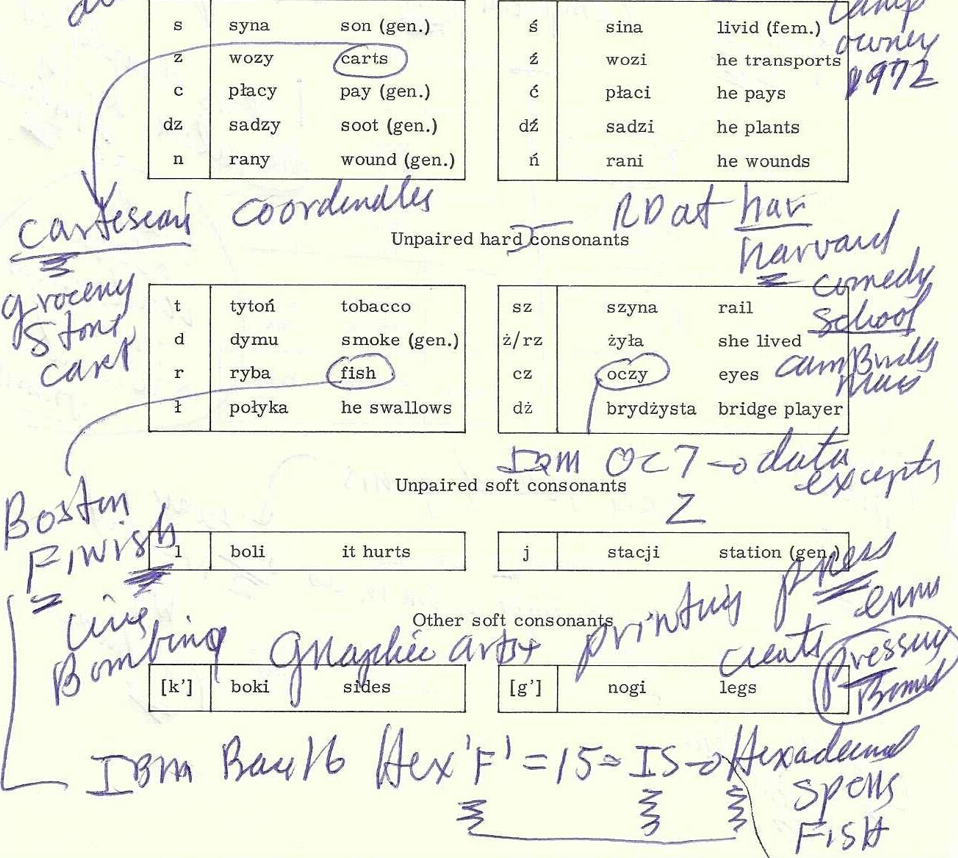 s syna son (gen.) ś sina livid (fem.)
owner
z wozy carts ź wozi he transports
1972
c płacy pay (gen.) ć płaci he pays
dz sadzy soot (gen.) dź sadzi he plants
n rany wound (gen.) ń rani he wounds
coordinates
RD at har
Unpaired hard consonants
harvard
comedy
school
grocery
store
cart
t tytoń tobacco sz szyna rail
d dymu smoke (gen.) ż/rz żyła she lived
r ryba fish cz oczy eyes
ł połyka he swallows dż brydżysta bridge player
IBM OC7 → data
excepts
Unpaired soft consonants
Z
Boston
Finish
Line
Bombing
l boli it hurts j stacji station (gen.)
Other soft consonants
Graphic arts printing press
creats
pressure
Bomb
[k'] boki sides [g'] nogi legs
IBM Base 16 Hex 'F' = 15 = IS → Hexadecimal
spells
FISH